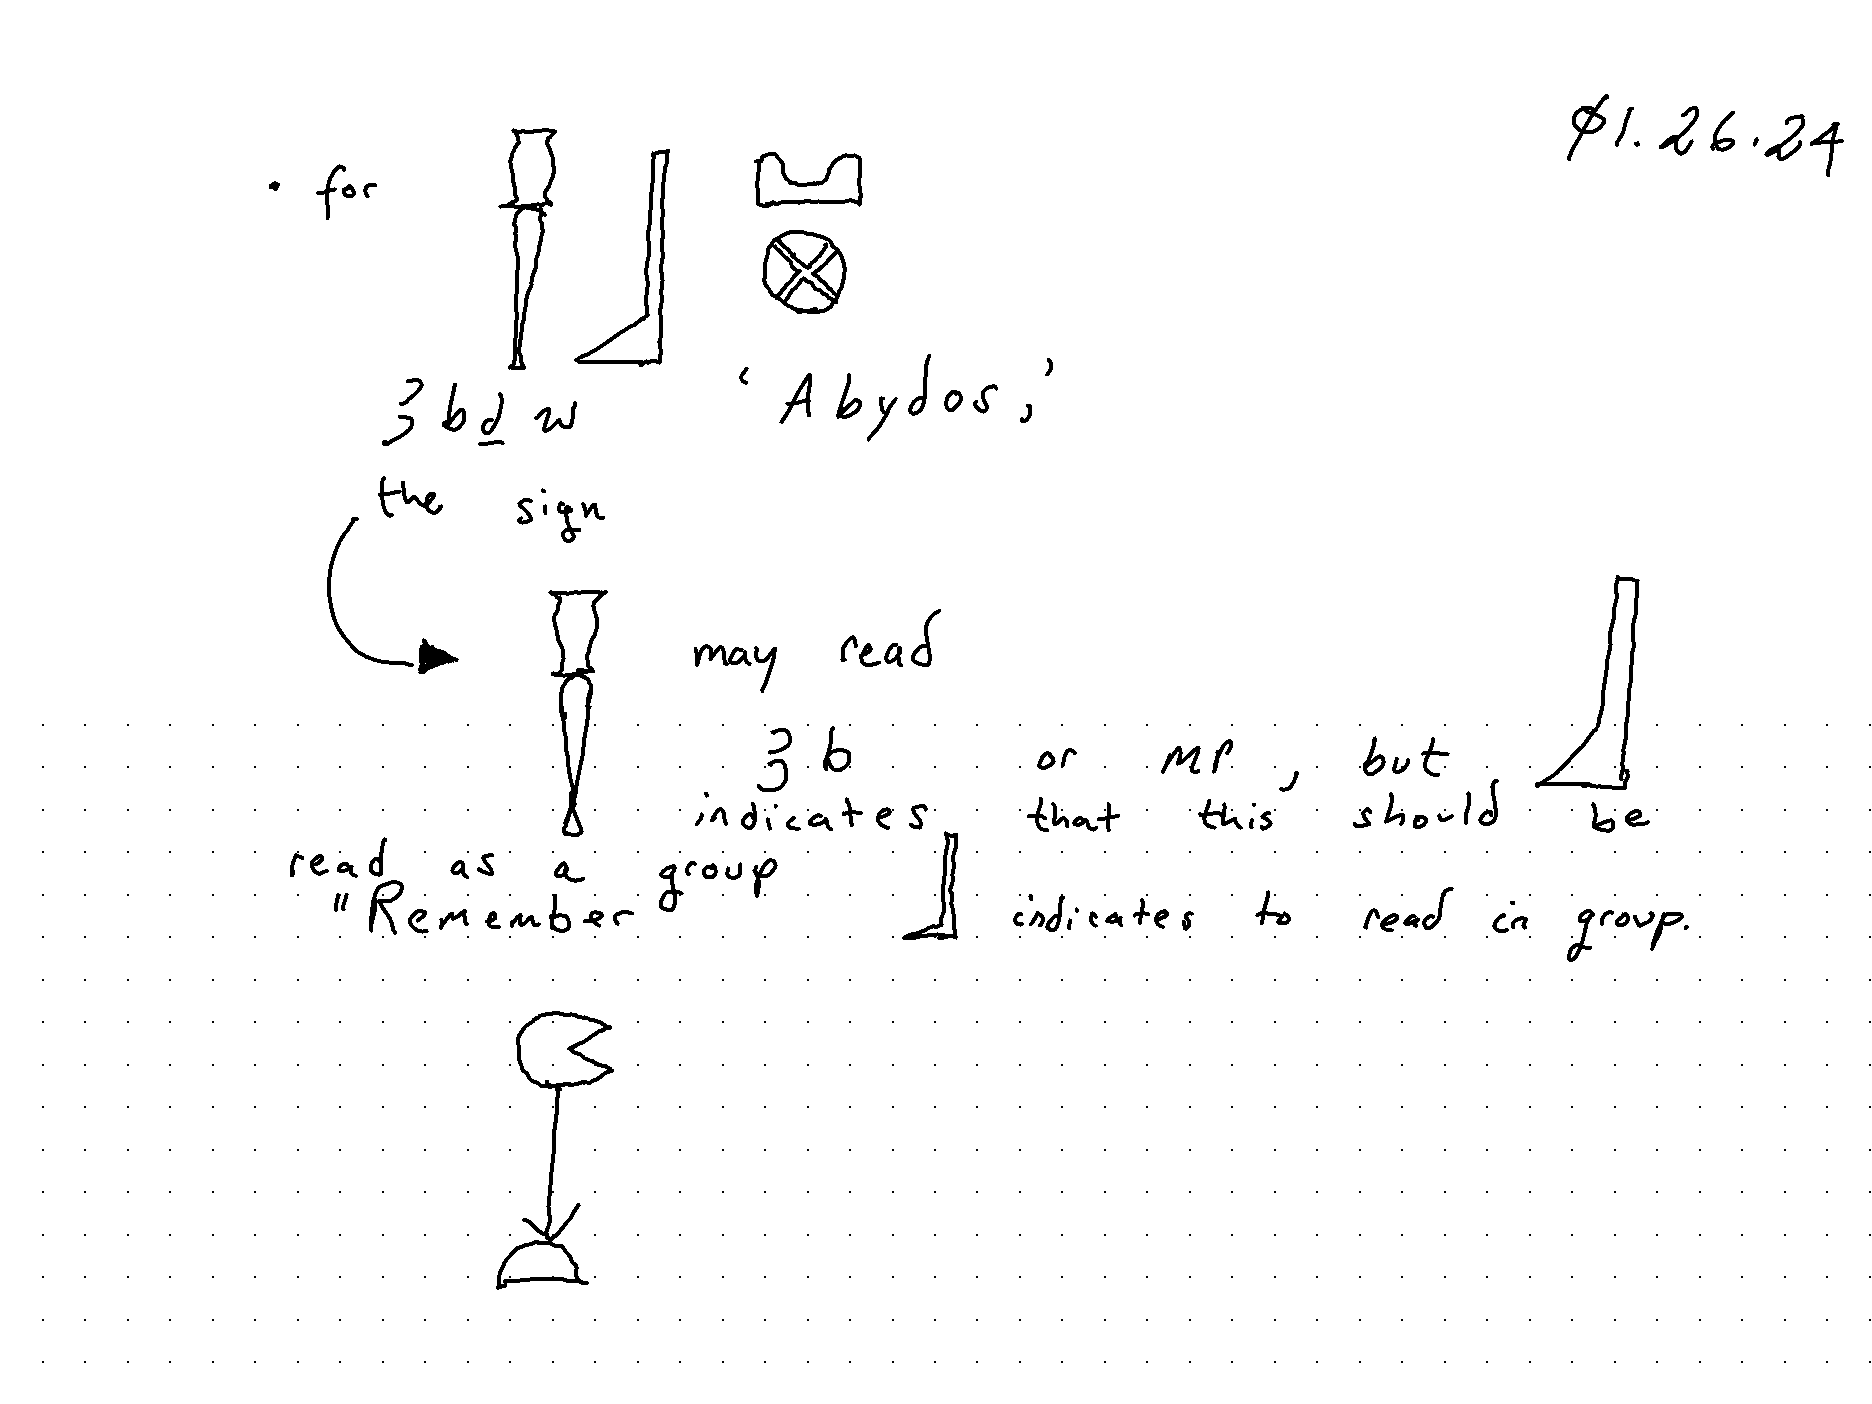 01.26.24
• for 𓍋 𓃀 𓈋 𓊖
ꜣbḏw 'Abydos,'
the sign
𓍋 may read
ꜣb or mr, but 𓃀
indicates that this should be
read as a group
"Remember 𓃀 indicates to read in group.